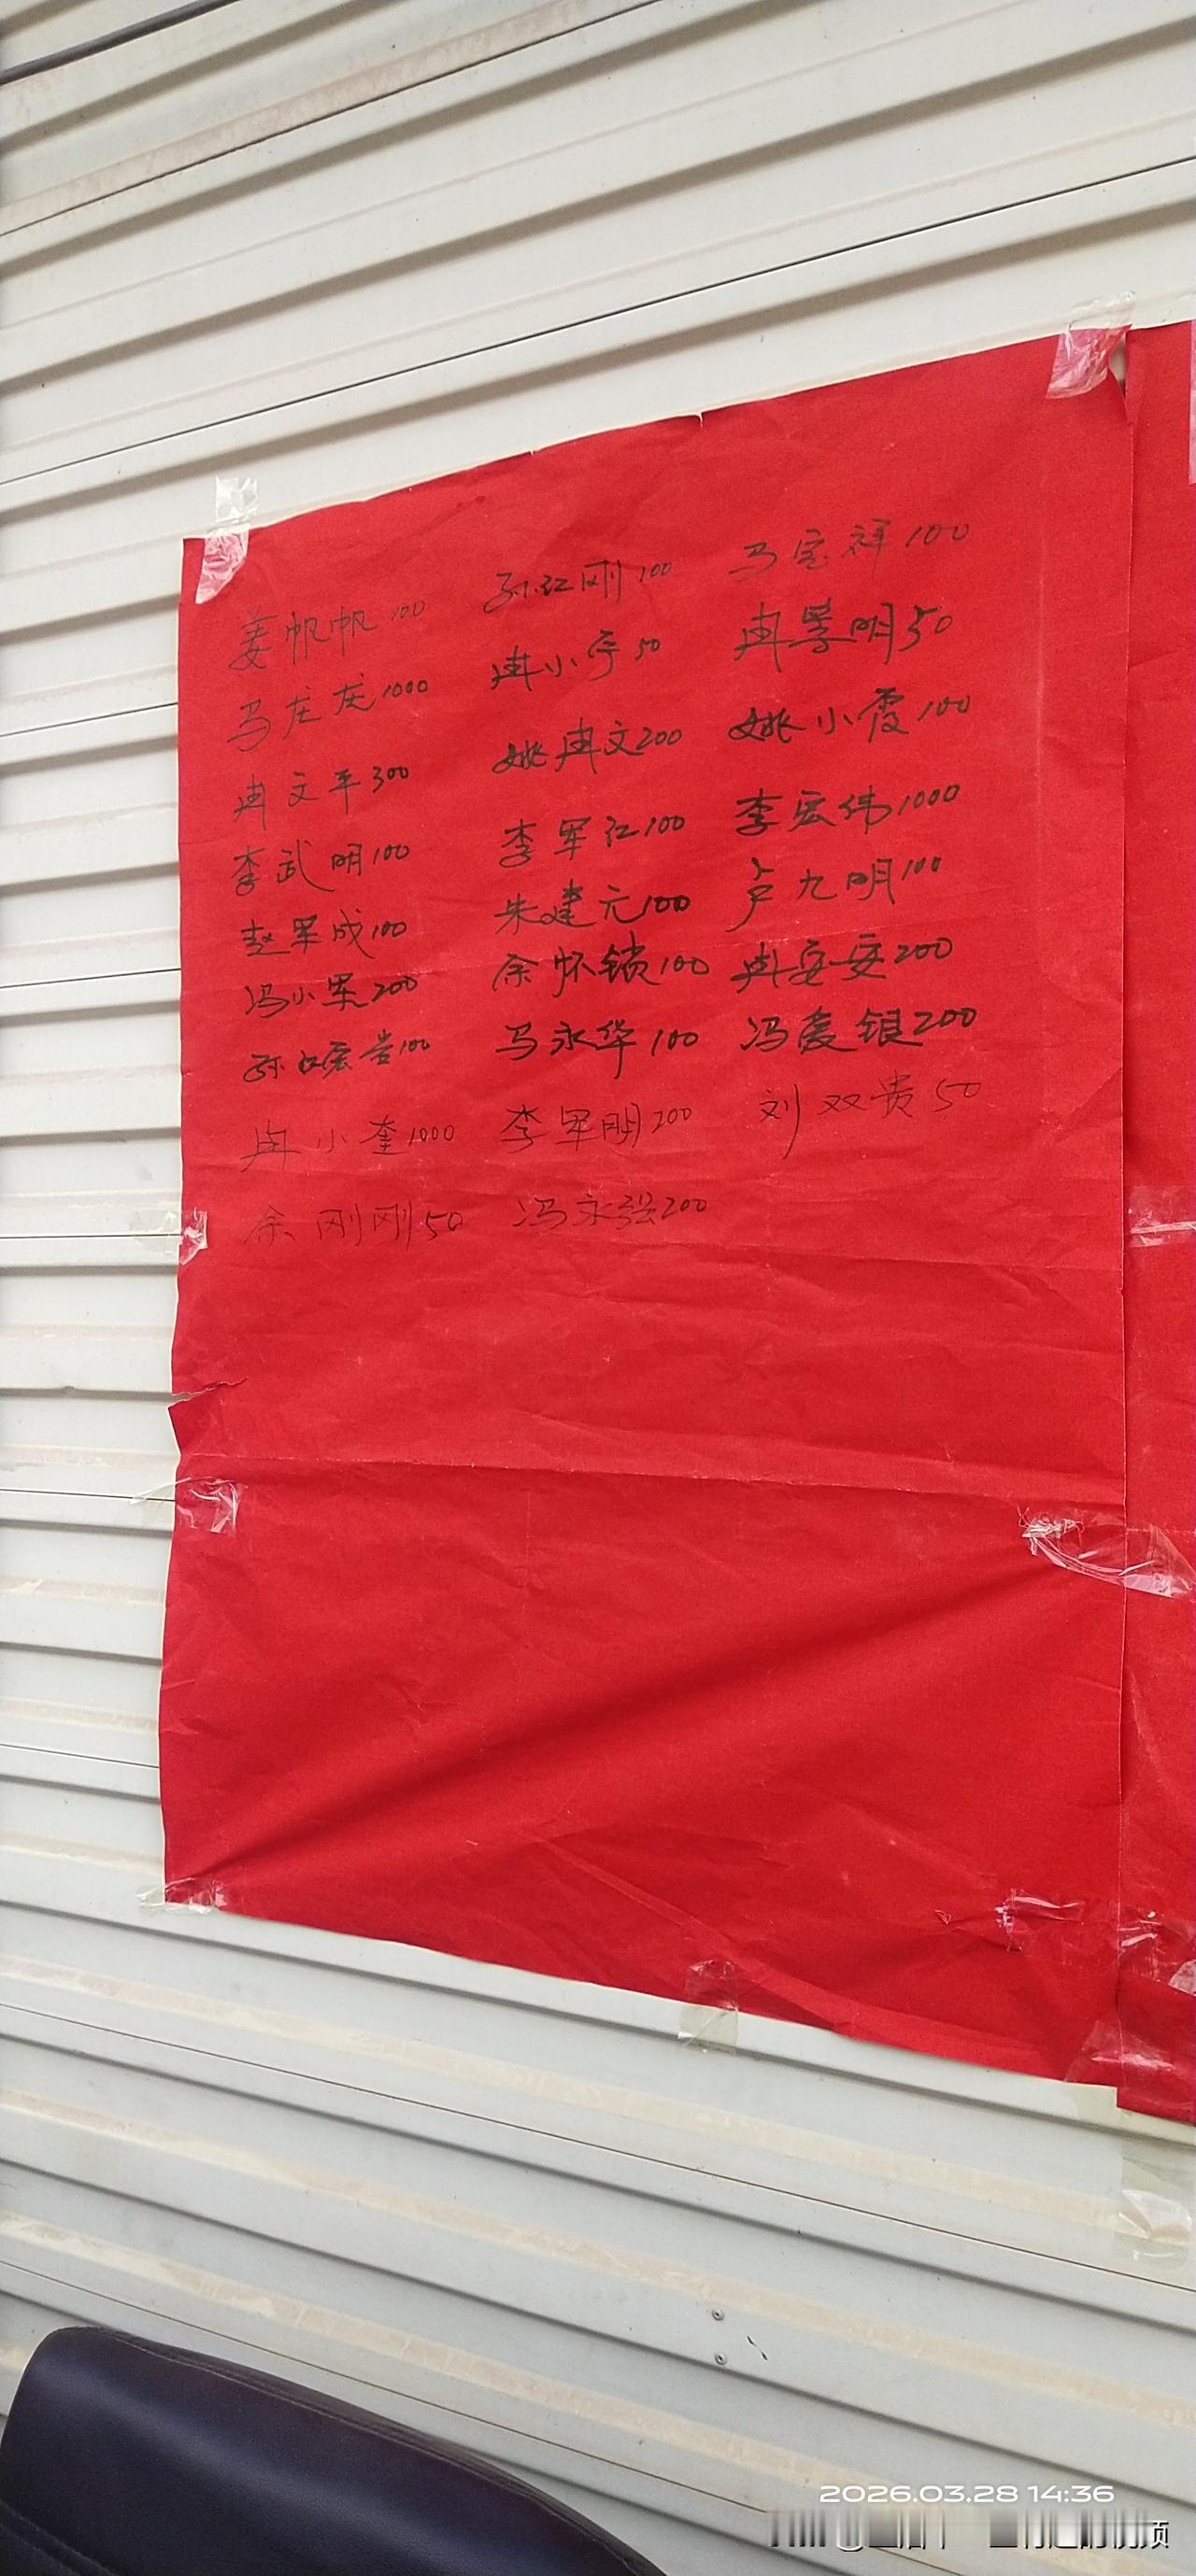 姜帆帆100 孙红刚100 马宝祥100
马龙龙1000 冉小宁50 冉景明50
冉文平300 姚冉文200 姚小霞100
李武明100 李军红100 李宏伟1000
赵军成100 朱建元100 卢九明100
冯小军200 余怀锁100 冉安安200
孙 贵100 马永华100 冯爱银200
冉小奎1000 李军明200 刘双贵50
余刚刚50 冯永强200
2026.03.28 14:36